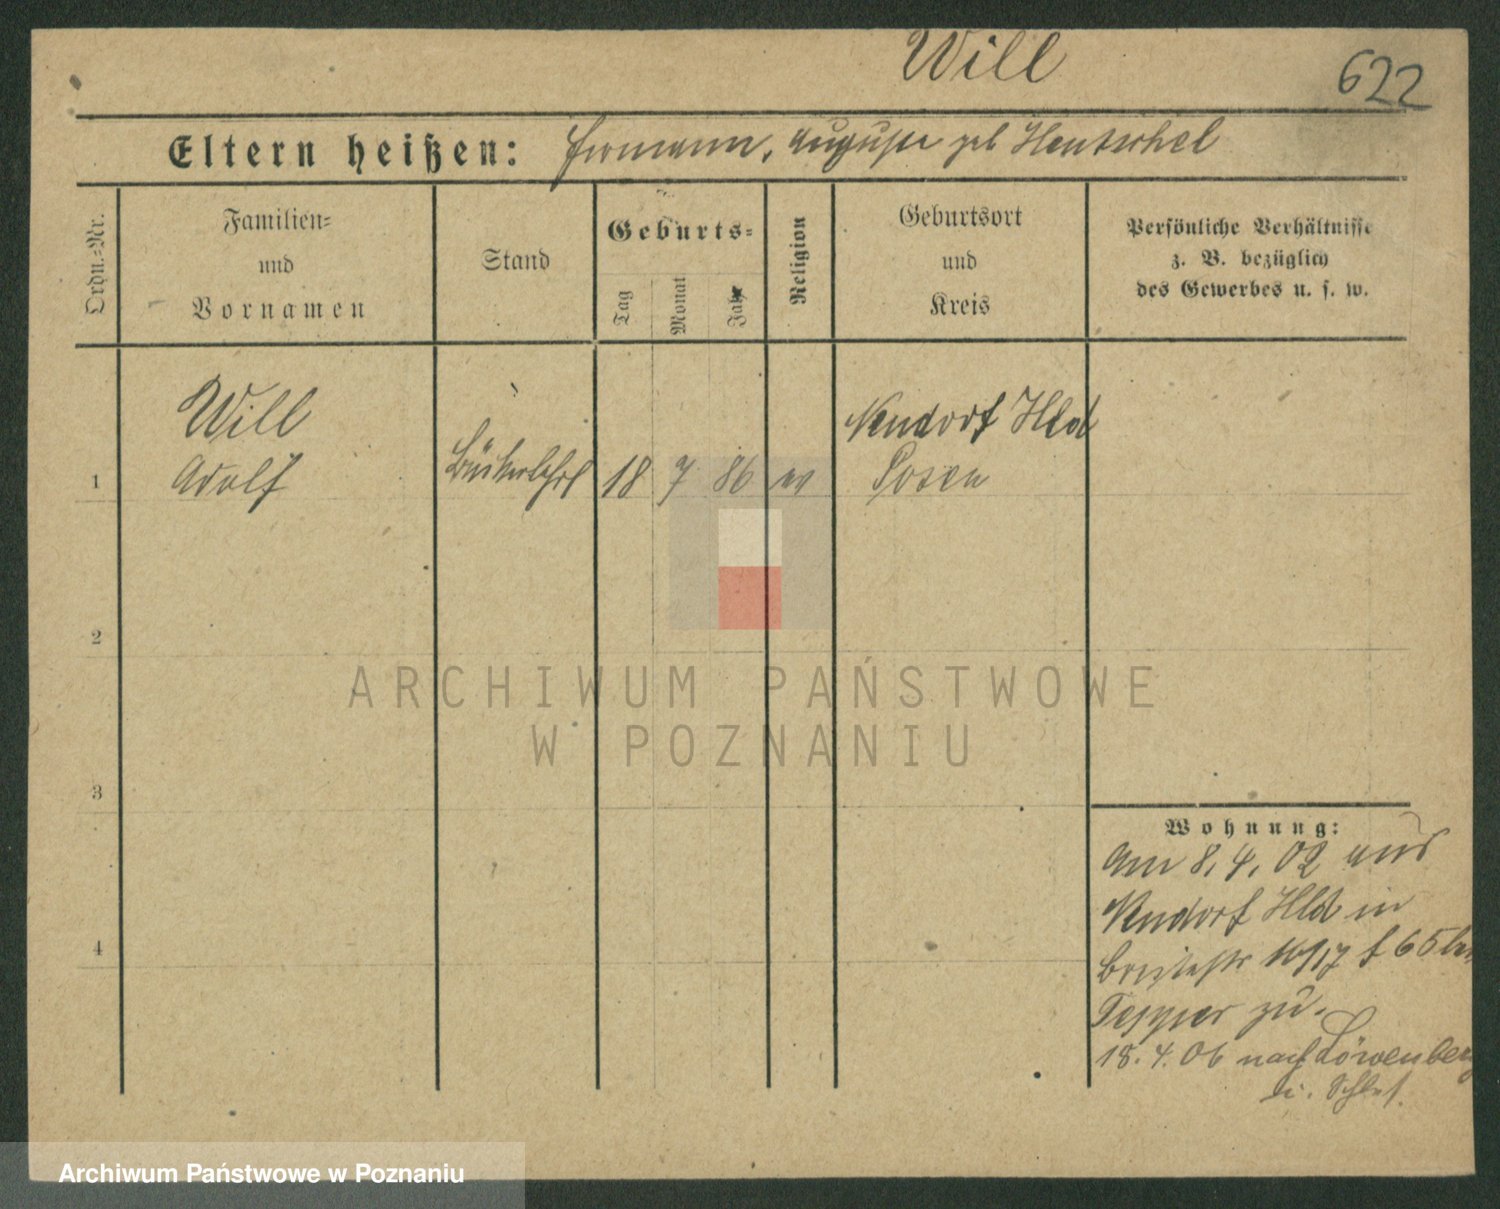 Will
622
Eltern heißen: Hermann, Auguste geb Hentschel
Ordn.-Nr.
Familien-
und
Vornamen
Stand
Geburts-
Tag
Monat
Jahr
Religion
Geburtsort
und
Kreis
Persönliche Verhältnisse
z. B. bezüglich
des Gewerbes u. s. w.
1
Will
Adolf
18 7 86 ev
Neudorf Hld
Posen
2
3
4
Wohnung:
Am 8.4.02 aus
Neudorf Hld in
Breitestr
zu.
18.4.06 nach Löwenberg
i. Schles.
ARCHIWUM PAŃSTWOWE
W POZNANIU
Archiwum Państwowe w Poznaniu